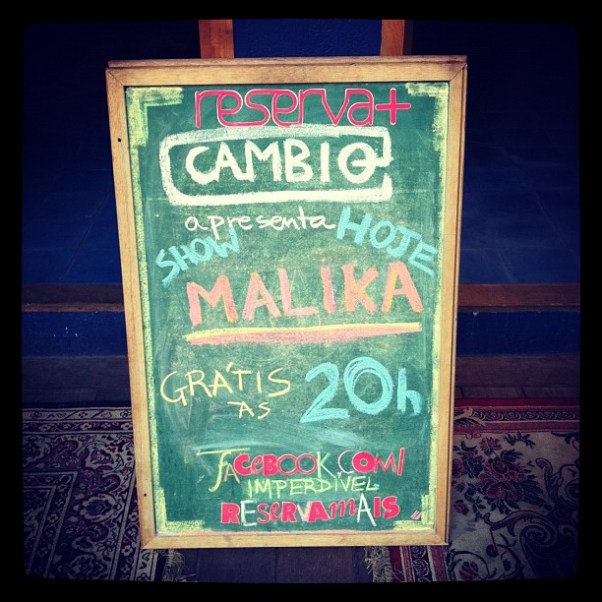 reserva+
CAMBIO
apresenta
SHOW HOJE
MALIKA
GRÁTIS
ÀS 20h
FACEBOOK.COM/
IMPERDÍVEL
RESERVAMAIS